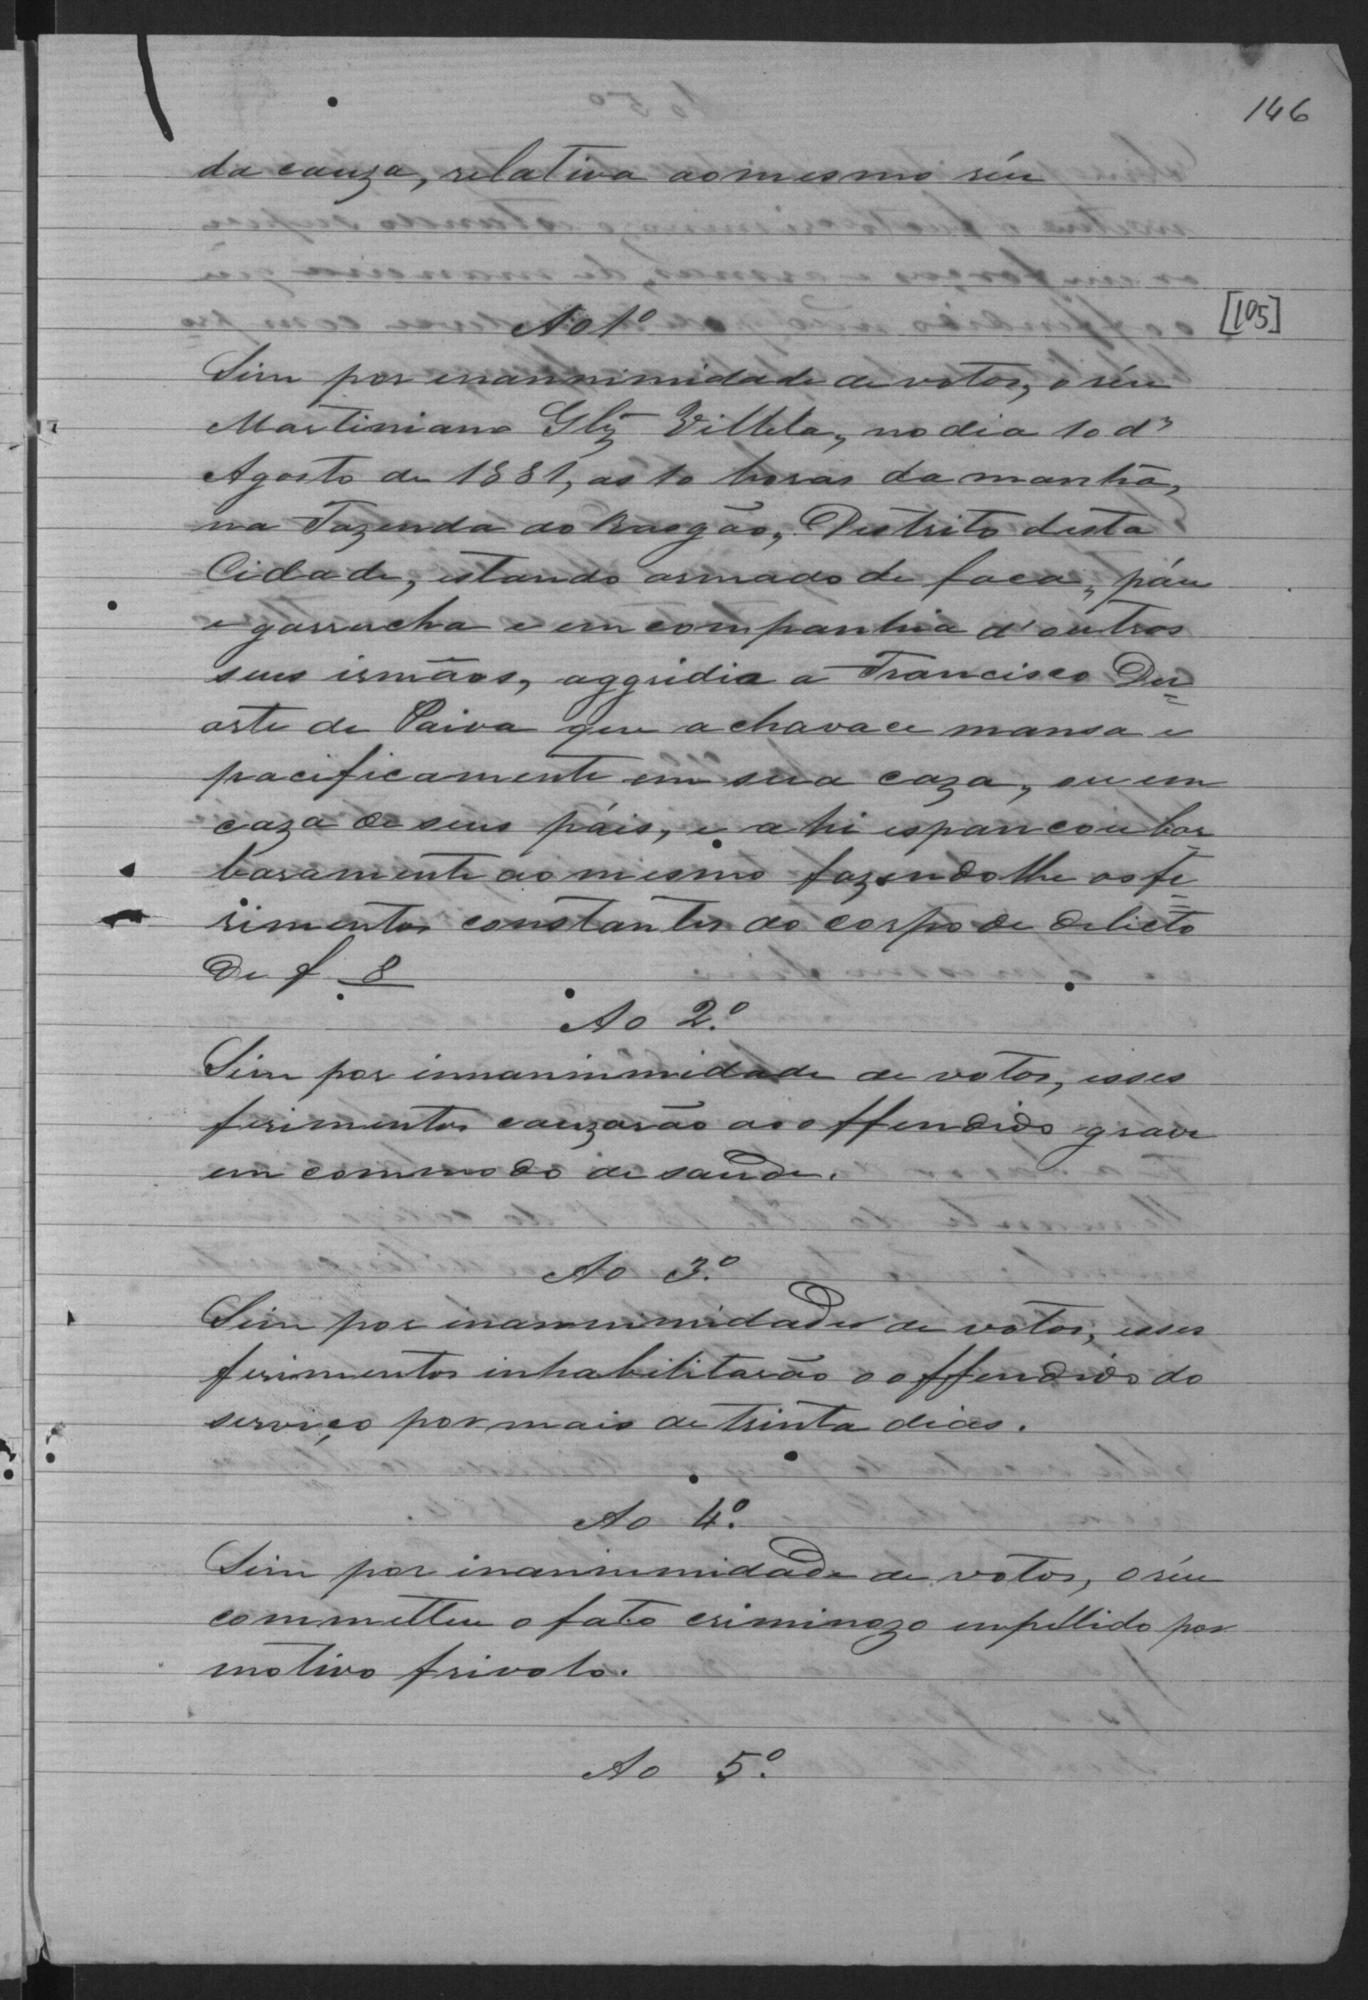 146
da cauza, relativa ao mesmo réu
[105]
Ao 1º
Sim por inannimidade de votos, o réu
Martiniano Glz Villela, no dia 10 de
Agosto de 1881, as 10 horas da manhã,
na Fazenda do Rasgão, Destrito desta
Cidade, estando armado de faca, páu
e garrucha e em companhia d'outros
seus irmãos, aggridio a Francisco Du=
arte de Paiva que achavace mansa e
pacificamente em sua caza, ou em
caza de seus páis, e ahi espancou bar
baramente ao mesmo fazendolhe os fe=
rimentos constantes do corpo de delicto
de f 8
Ao 2.º
Sim por innanimidade de votos, esses
ferimentos cauzarão ao offendido grave
emcommodo de saude.
Ao 3.º
Sim por inannimidade de votos, esses
ferimentos inhabilitarão o offendido do
serviço por mais de trinta dias.
Ao 4.º
Sim por inannimidade de votos, o réu
commetteu o fato criminozo impellido por
motivo frivolo.
Ao 5.º